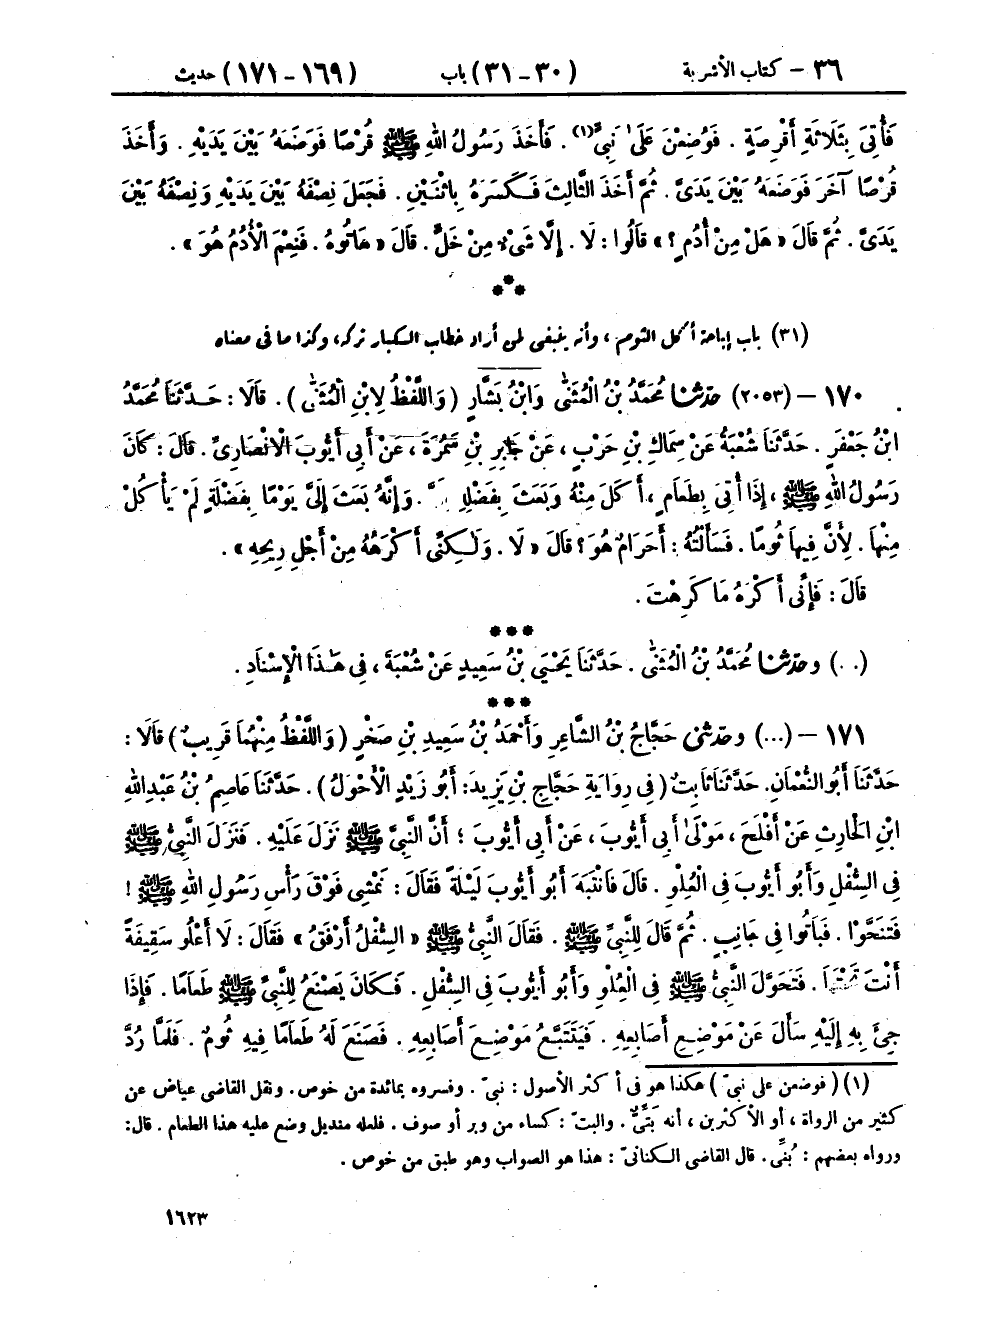 ٣٦ - كتاب الأشربة (٣٠-٣١) باب (١٦٩-١٧١) حديث
فَأُتِىَ بِثَلَاثَةِ أَقْرِصَةٍ . فَوُضِعْنَ عَلَىٰ نَبِىٍّ(١) . فَأَخَذَ رَسُولُ اللهِ ﷺ قُرْصًا فَوَضَعَهُ بَيْنَ يَدَيْهِ . وَأَخَذَ
قُرْصًا آخَرَ فَوَضَعَهُ بَيْنَ يَدَىَّ . ثُمَّ أَخَذَ الثَّالِثَ فَكَسَرَهُ بِاثْنَيْنِ . فَجَعَلَ نِصْفَهُ بَيْنَ يَدَيْهِ وَنِصْفَهُ بَيْنَ
يَدَىَّ . ثُمَّ قَالَ « هَلْ مِنْ أُدُمٍ ؟ » قَالُوا : لَا . إِلَّا شَىْءٌ مِنْ خَلٍّ . قَالَ « هَاتُوهُ . فَنِعْمَ الْأُدُمُ هُوَ » .
***
(٣١) باب إباحة أكل الثوم ، وأنه ينبغى لمن أراد خطاب الكبار تركه، وكذا ما فى معناه
١٧٠ - (٢٠٥٣) حَدَّثَنَا مُحَمَّدُ بْنُ الْمُثَنَّىٰ وَابْنُ بَشَّارٍ ( وَاللَّفْظُ لِابْنِ الْمُثَنَّىٰ ) . قَالَا : حَدَّثَنَا مُحَمَّدُ
ابْنُ جَعْفَرٍ . حَدَّثَنَا شُعْبَةُ عَنْ سِمَاكِ بْنِ حَرْبٍ ، عَنْ جَابِرِ بْنِ سَمُرَةَ ، عَنْ أَبِى أَيُّوبَ الْأَنْصَارِىِّ . قَالَ : كَانَ
رَسُولُ اللهِ ﷺ ، إِذَا أُتِىَ بِطَعَامٍ ، أَكَلَ مِنْهُ وَبَعَثَ بِفَضْلِهِ . وَإِنَّهُ بَعَثَ إِلَىَّ يَوْمًا بِفَضْلَةٍ لَمْ يَأْكُلْ
مِنْهَا . لِأَنَّ فِيهَا ثُومًا . فَسَأَلْتُهُ : أَحَرَامٌ هُوَ ؟ قَالَ « لَا . وَلَٰكِنِّى أَكْرَهُهُ مِنْ أَجْلِ رِيحِهِ » .
قَالَ : فَإِنِّى أَكْرَهُ مَا كَرِهْتَ .
***
(...) وحَدَّثَنَا مُحَمَّدُ بْنُ الْمُثَنَّىٰ . حَدَّثَنَا يَحْيَى بْنُ سَعِيدٍ عَنْ شُعْبَةَ ، فِى هَٰذَا الْإِسْنَادِ .
***
١٧١ - (...) وحَدَّثَنِى حَجَّاجُ بْنُ الشَّاعِرِ وَأَحْمَدُ بْنُ سَعِيدِ بْنِ صَخْرٍ ( وَاللَّفْظُ مِنْهُمَا قَرِيبٌ ) قَالَا :
حَدَّثَنَا أَبُو النُّعْمَانِ. حَدَّثَنَا ثَابِتٌ ( فِى رِوَايَةِ حَجَّاجِ بْنِ يَزِيدَ: أَبُو زَيْدٍ الْأَحْوَلُ ) . حَدَّثَنَا عَاصِمُ بْنُ عَبْدِ اللهِ
ابْنِ الْحَارِثِ عَنْ أَفْلَحَ ، مَوْلَىٰ أَبِى أَيُّوبَ ، عَنْ أَبِى أَيُّوبَ ؛ أَنَّ النَّبِىَّ ﷺ نَزَلَ عَلَيْهِ . فَنَزَلَ النَّبِىُّ ﷺ
فِى السُّفْلِ وَأَبُو أَيُّوبَ فِى الْعُلْوِ . قَالَ فَانْتَبَهَ أَبُو أَيُّوبَ لَيْلَةً فَقَالَ : نَمْشِى فَوْقَ رَأْسِ رَسُولِ اللهِ ﷺ !
فَتَنَحَّوْا . فَبَاتُوا فِى جَانِبٍ . ثُمَّ قَالَ لِلنَّبِىِّ ﷺ . فَقَالَ النَّبِىُّ ﷺ « السُّفْلُ أَرْفَقُ » فَقَالَ : لَا أَعْلُو سَقِيفَةً
أَنْتَ تَحْتَهَا . فَتَحَوَّلَ النَّبِىُّ ﷺ فِى الْعُلْوِ وَأَبُو أَيُّوبَ فِى السُّفْلِ . فَكَانَ يَصْنَعُ لِلنَّبِىِّ ﷺ طَعَامًا . فَإِذَا
جِىءَ بِهِ إِلَيْهِ سَأَلَ عَنْ مَوْضِعِ أَصَابِعِهِ . فَيَتَتَبَّعُ مَوْضِعَ أَصَابِعِهِ . فَصَنَعَ لَهُ طَعَامًا فِيهِ ثُومٌ . فَلَمَّا رُدَّ
(١) ( فوضعن على نبىّ ) هكذا هو فى أكثر الأصول : نبىّ . وفسروه بمائدة من خوص. ونقل القاضى عياض عن
كثير من الرواة ، أو الأكثرين ، أنه بَتِّىٌّ . والبتّ : كساء من وبر أو صوف . فلعله منديل وضع عليه هذا الطعام . قال:
ورواه بعضهم : بُنِّى . قال القاضى الكنانىّ : هذا هو الصواب وهو طبق من خوص .
١٦٢٣